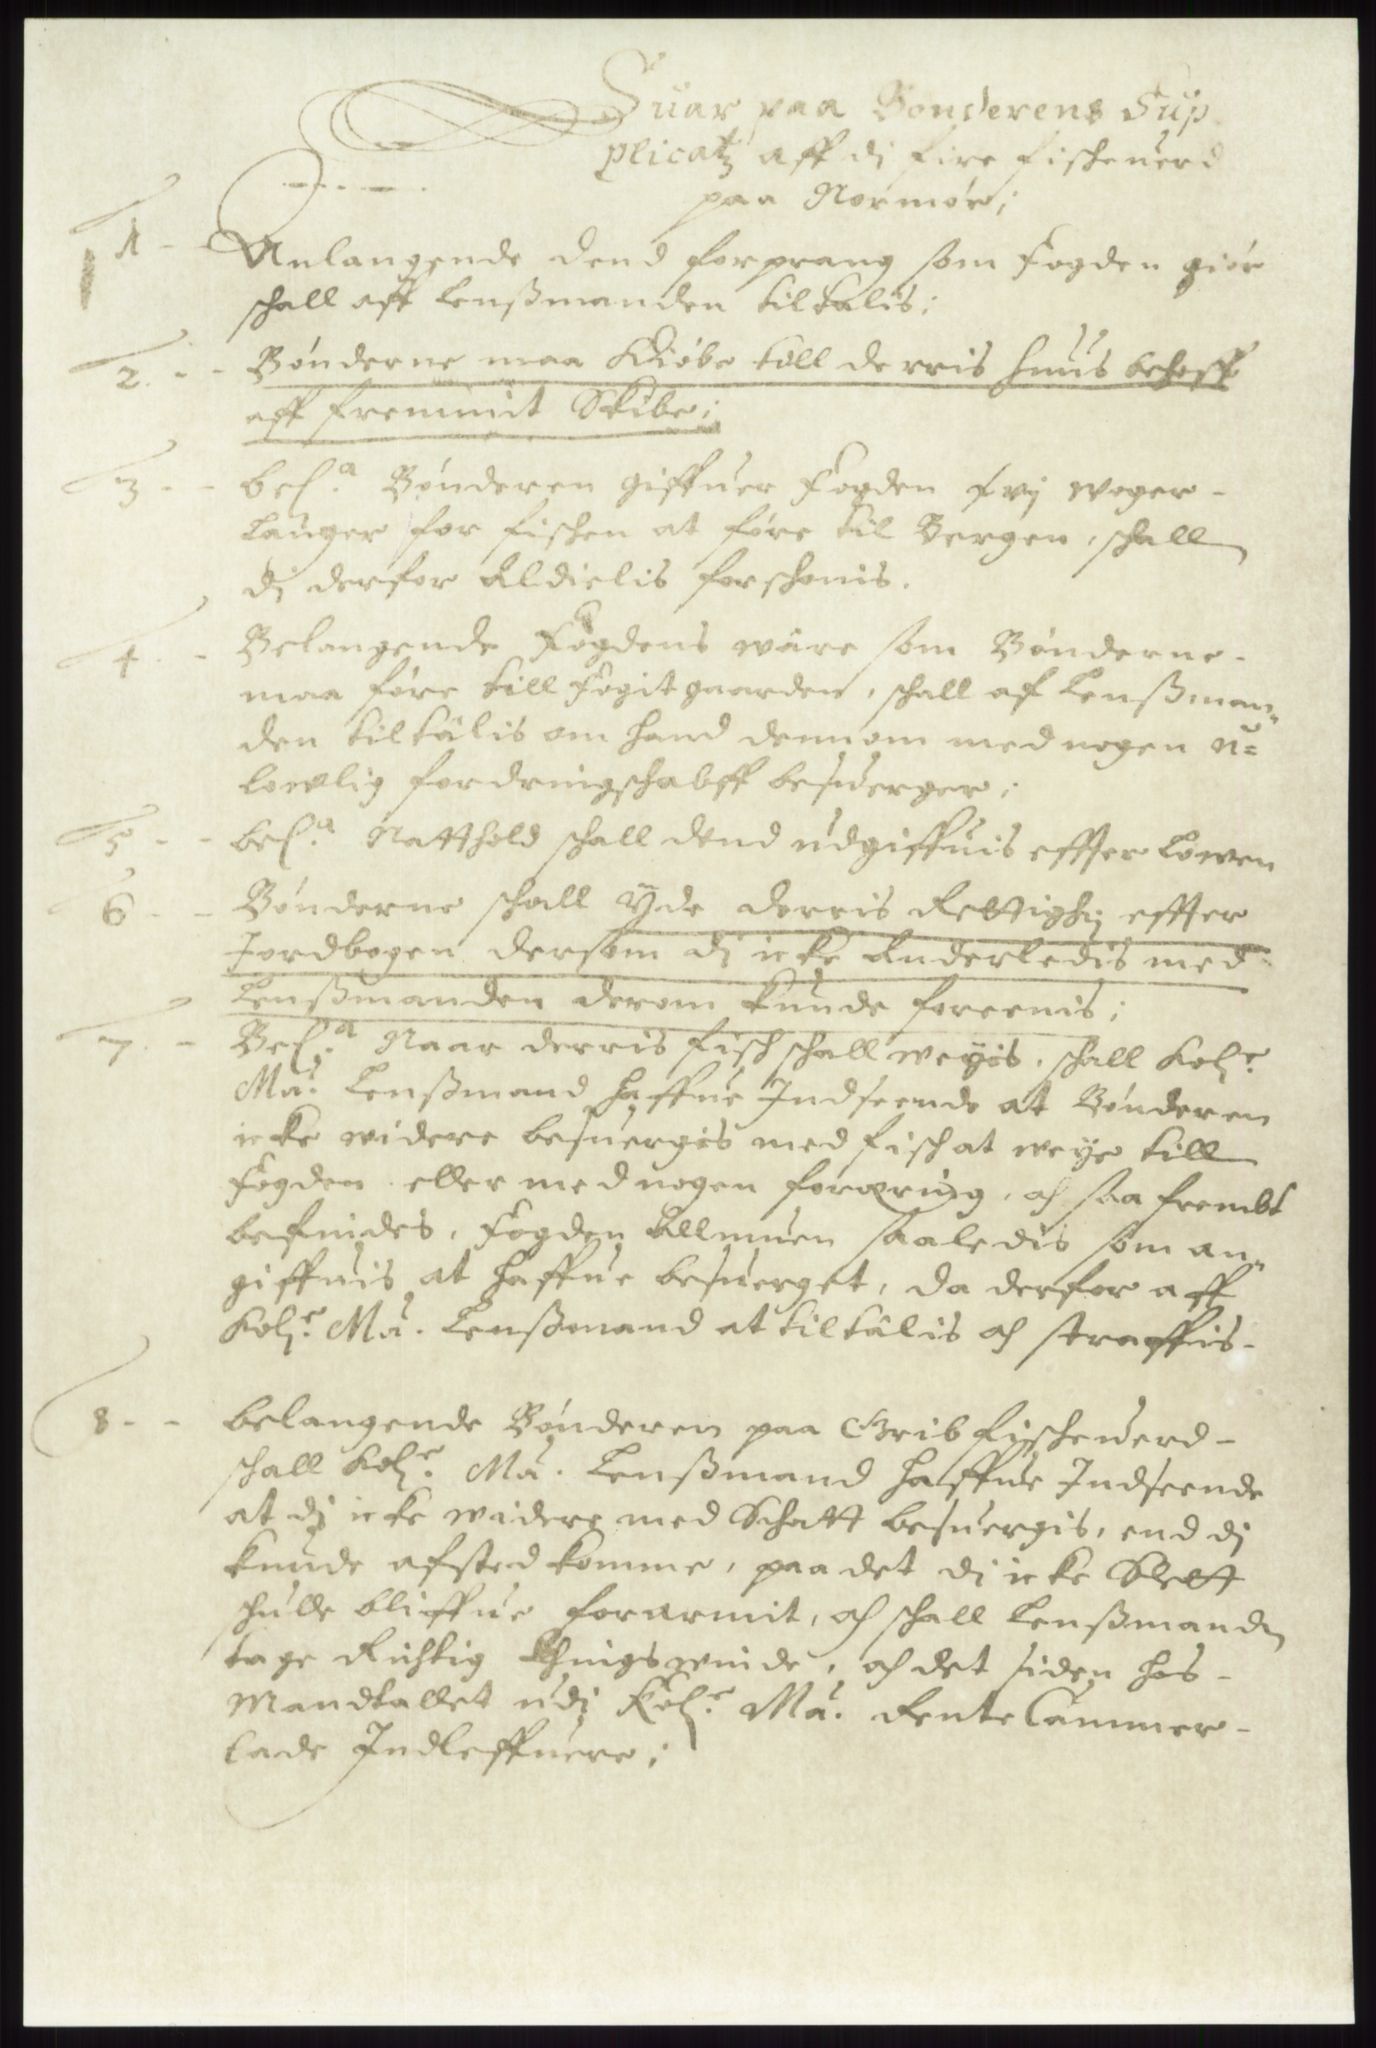 Suar paa Bønderens Sup
plicatz aff di fire fischeuerd
paa Normør;
1 - - Anlangende dend forprang som Fogden giör
schall aff Lenßmanden tiltalis;
2. - - Bønderne maa Kiøbe till derris huus behoff
aff fremmit Skibe;
3 - - bel.a Bønderen giffuer Fogden woger -
lauger for fischen at føre til Bergen, schall
di derfor Aldielis forschonis.
4. - Belangende Fogdens wäre som Bønderne -
maa føre till Fogitgaarden, schall af Lenßman„
den tiltälis om hand dennom med nogen u=
lowlig fordringschabff besuerger;
5 - - bel.a Natthold schall dend udgiffuis effter Lowen
6 - - Bønderne schall Yde derris Rettighj effter
Jordbogen dersom di icke Anderledis med
Lenßmanden derom kunde foreenis;
7. - Bel.a Naar derris fisch schall weyis, schall Kol.e
Ma. Lenßmand haffue Indseende at Bønderen
icke widere besuergis med fisch at weye till
Fogden eller med nogen foræring, och saa frembt
befindes, Fogden Allmuen saaledis som an„
giffuis at haffue besuerget, da derfor aff
Kol.e Ma. Lenßmand at tiltälis och straffis -
8 - - belangende Bønderen paa Grib fischeuerd -
schall Kol.e Ma. Lenßmand haffue Indseende
at di icke widere med Schatt besuergis, end di
kunde afsted komme, paa det di icke Slett
schulle bliffue forarmit, och schall Lenßmanden
tage Richtig Thingswinde, och det siden hos -
Mandtallet udj Kol.e Ma. RenteCammer -
lade Indleffuere;